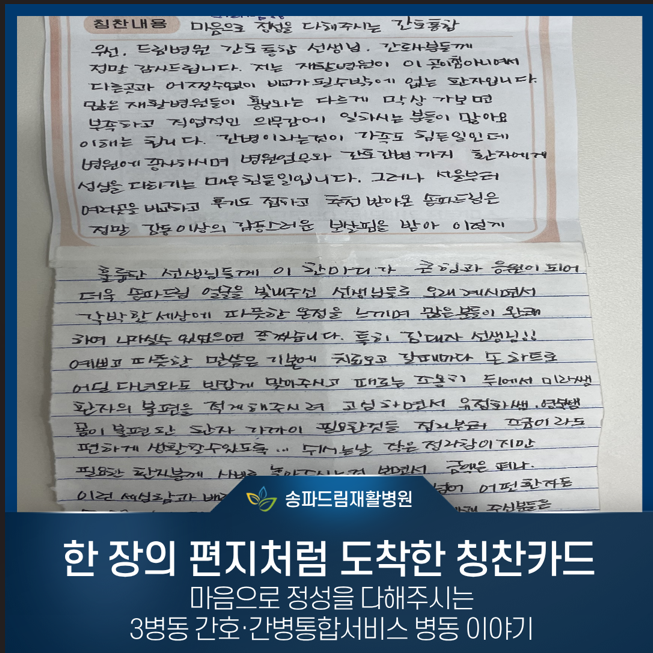 칭찬내용
마음으로 정성을 다해주시는 간호통합
우선, 드림병원 간호통합 선생님, 간호사분들께
정말 감사드립니다. 저는 재활병원이 이 곳이 처음이 아니여서
다른곳과 어쩔수없이 비교가 될수밖에 없는 환자입니다.
많은 재활병원들이 홍보와는 다르게 막상 가보면
부족하고 직업적인 의무감에 일하시는 분들이 많아요
이해는 합니다. 간병이라는것이 가족도 힘든일인데
병원에 종사하시며 병원업무와 간호간병까지 환자에게
성심을 다하기는 매우 힘든일입니다. 그러나 서울부터
여러곳을 비교하고 후기도 접하고 추천 받아온 송파드림은
정말 감동이상의 감동스러운 보살핌을 받아 이렇게
훌륭한 선생님들께 이 한마디가 큰힘과 응원이 되어
더욱 송파드림 얼굴을 빛내주신 선생님들로 오래 계시면서
각박한 세상에 따뜻한 온정을 느끼며 많은분들이 완쾌
하여 나가실수 있었으면 좋겠습니다. 특히 선생님!!
예쁘고 따뜻한 말씀은 기본에 치료오고 갈때마다 손하트로
어딜 다녀와도 반갑게 맞아주시고 때로는 조용히 뒤에서
환자의 불편을 적게해주시려 고심하면서
몸이 불편한 환자 가까이 필요한것들 집기부터 조금이라도
편하게 생활할수있도록... 쉬시는날 작은 정리함이지만
필요한 환자분께 보면서
이런 세심함과 어떤환자든
송파드림재활병원
한 장의 편지처럼 도착한 칭찬카드
마음으로 정성을 다해주시는
3병동 간호·간병통합서비스 병동 이야기